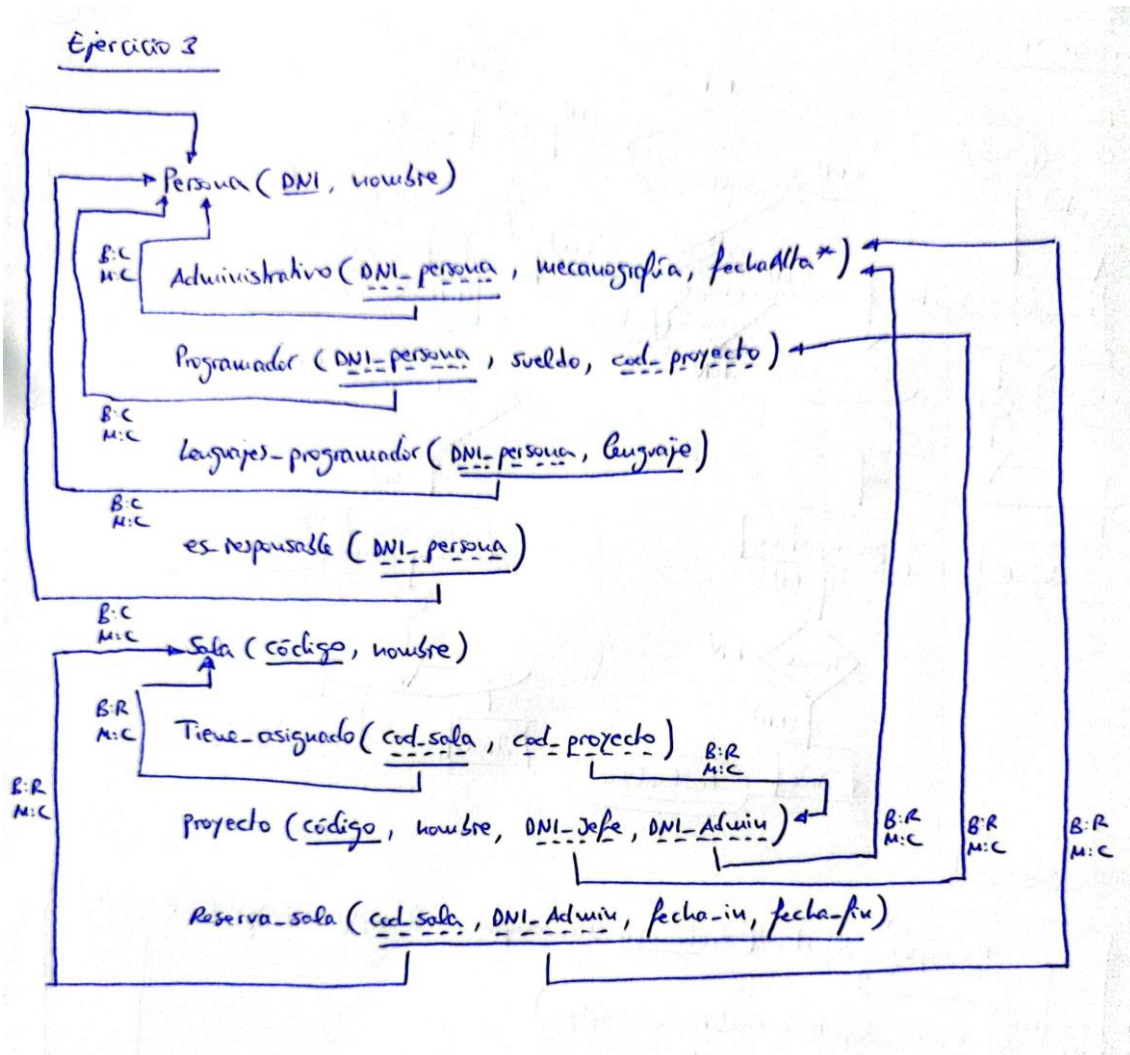 Ejercicio 3
Persona ( DNI, nombre )
B:C
M:C
Administrativo ( DNI_persona, mecanografía, fechaAlta* )
Programador ( DNI_persona, sueldo, cod_proyecto )
B:C
M:C
Lenguajes_programador ( DNI_persona, lenguaje )
B:C
M:C
es_responsable ( DNI_persona )
B:C
M:C
Sala ( código, nombre )
B:R
M:C
Tiene_asignado ( cod_sala, cod_proyecto )
B:R
M:C
B:R
M:C
proyecto ( código, nombre, DNI_Jefe, DNI_Admin )
B:R
M:C
B:R
M:C
B:R
M:C
Reserva_sala ( cod_sala, DNI_Admin, fecha_in, fecha_fin )